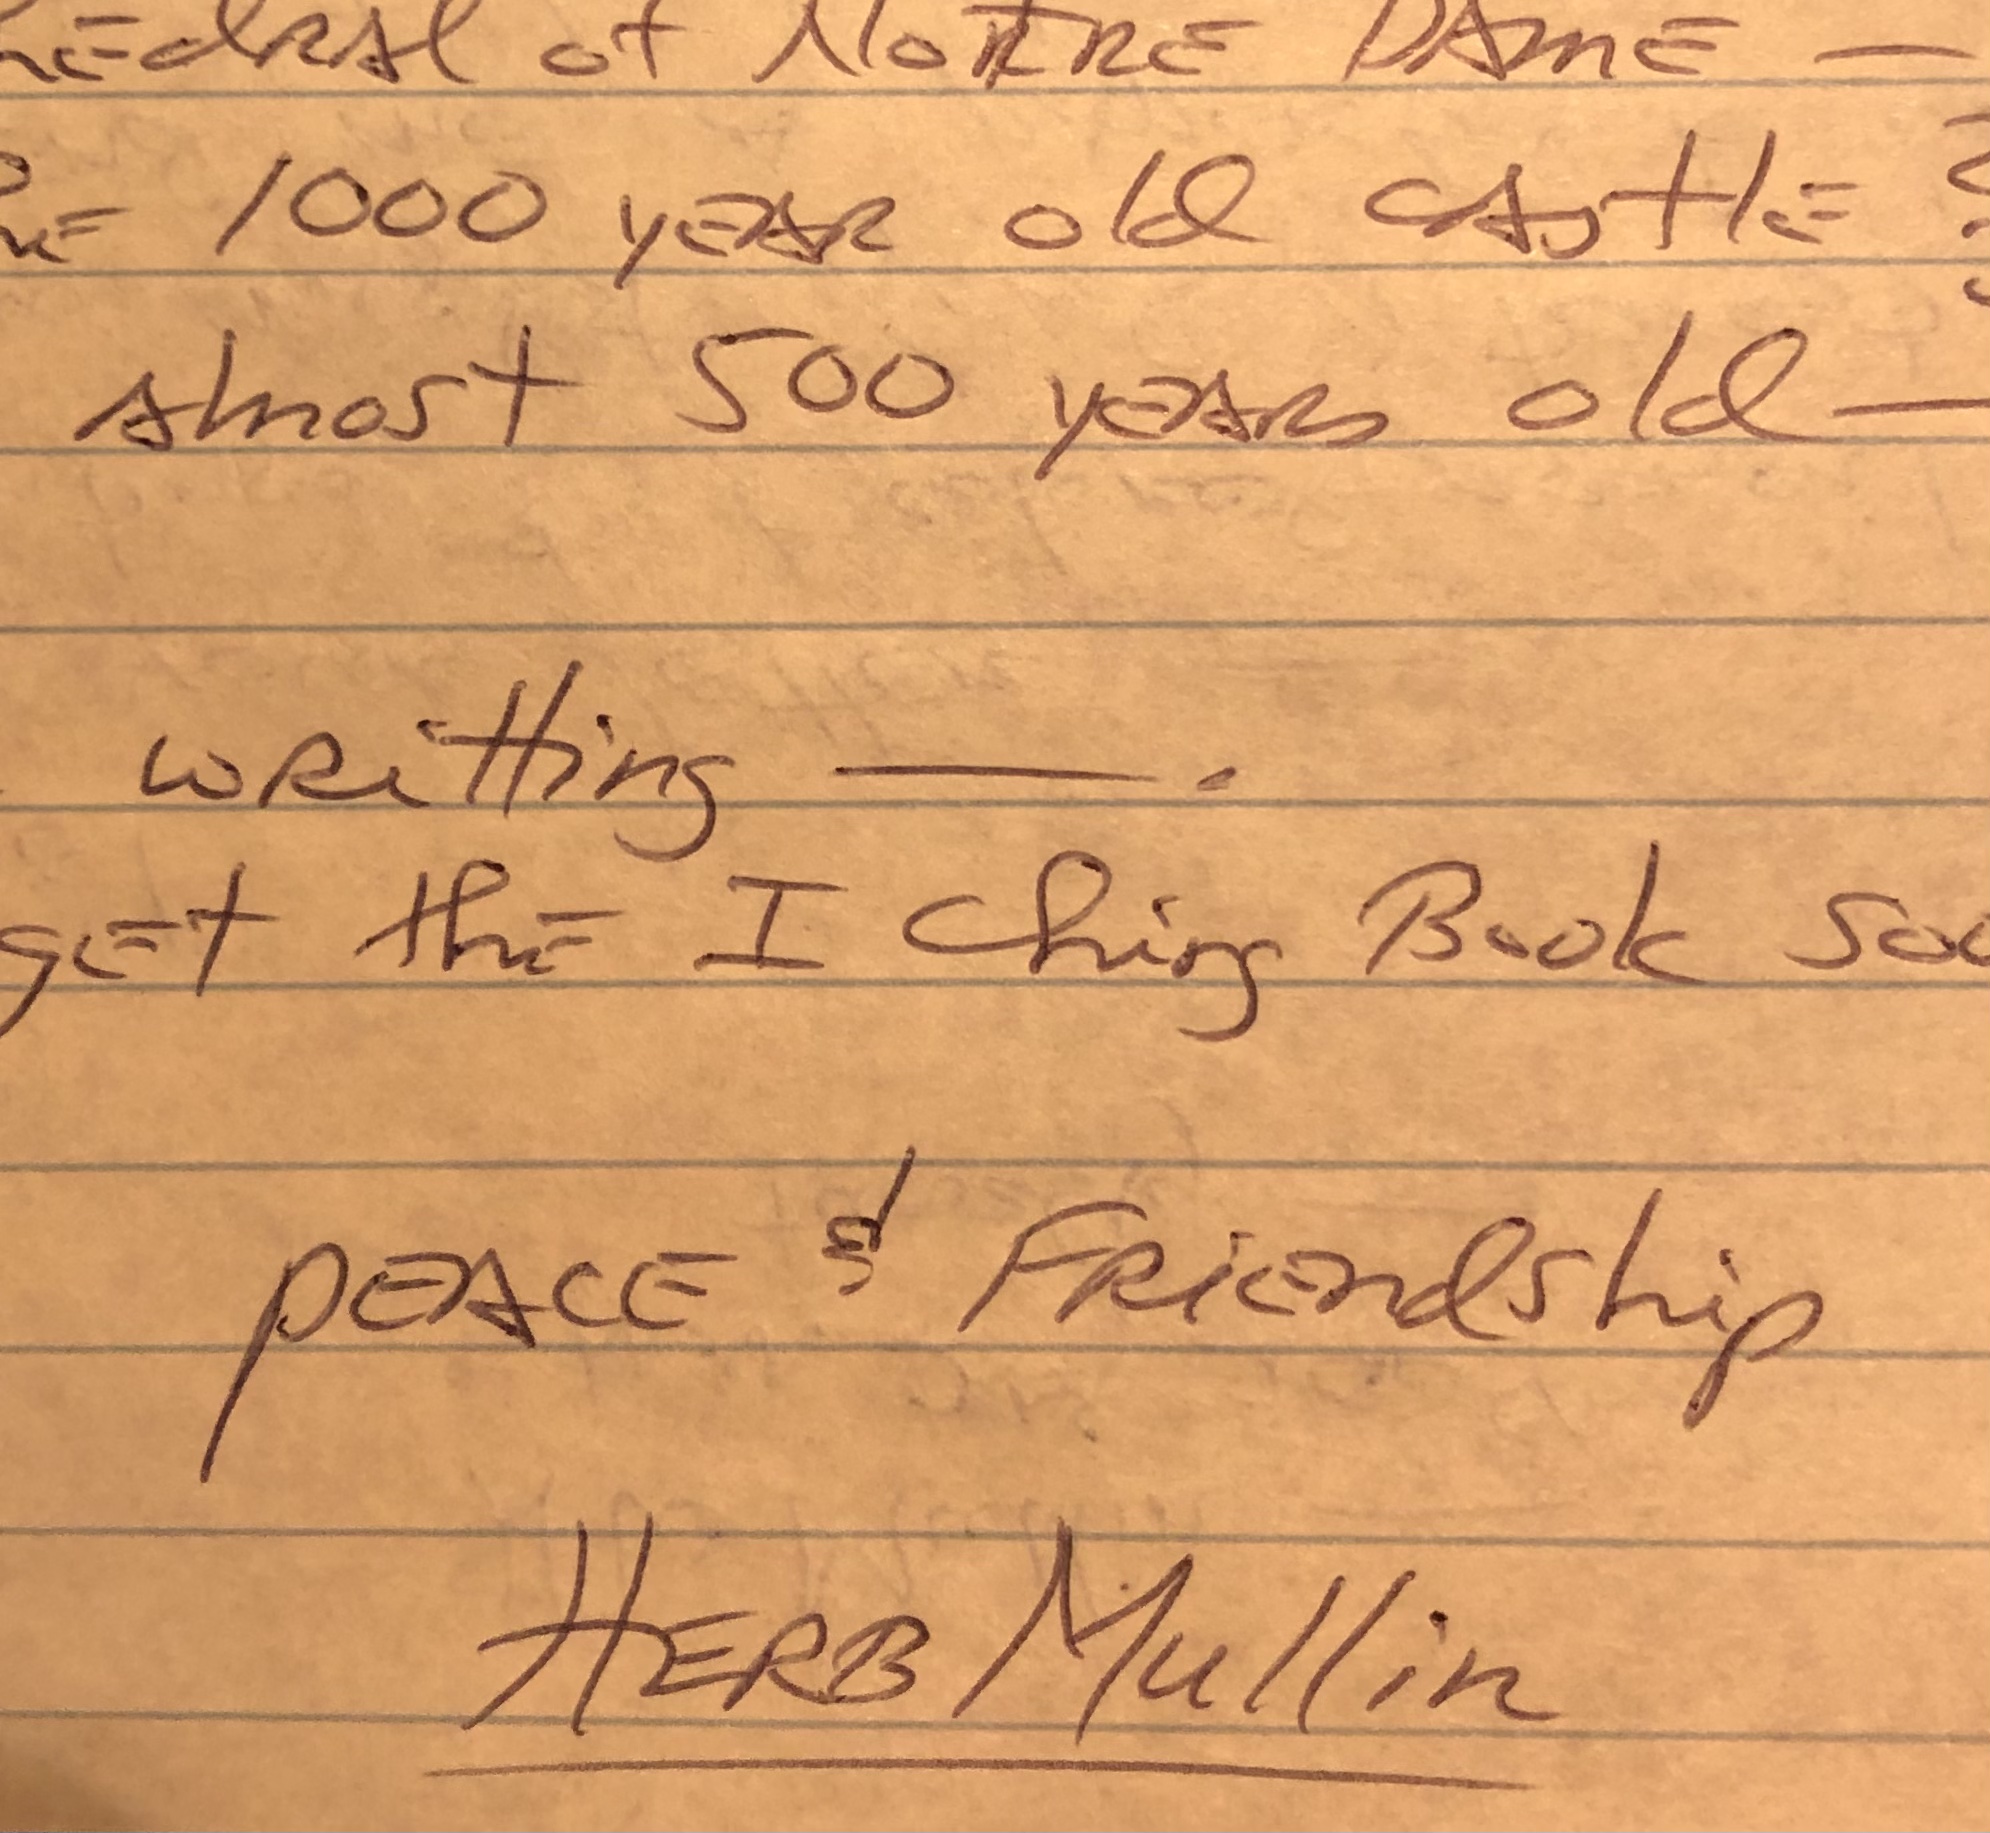 hedral of Notre Dame —
the 1000 year old castle
almost 500 years old —
writting — .
get the I Ching Book soo
peace & Friendship
Herb Mullin